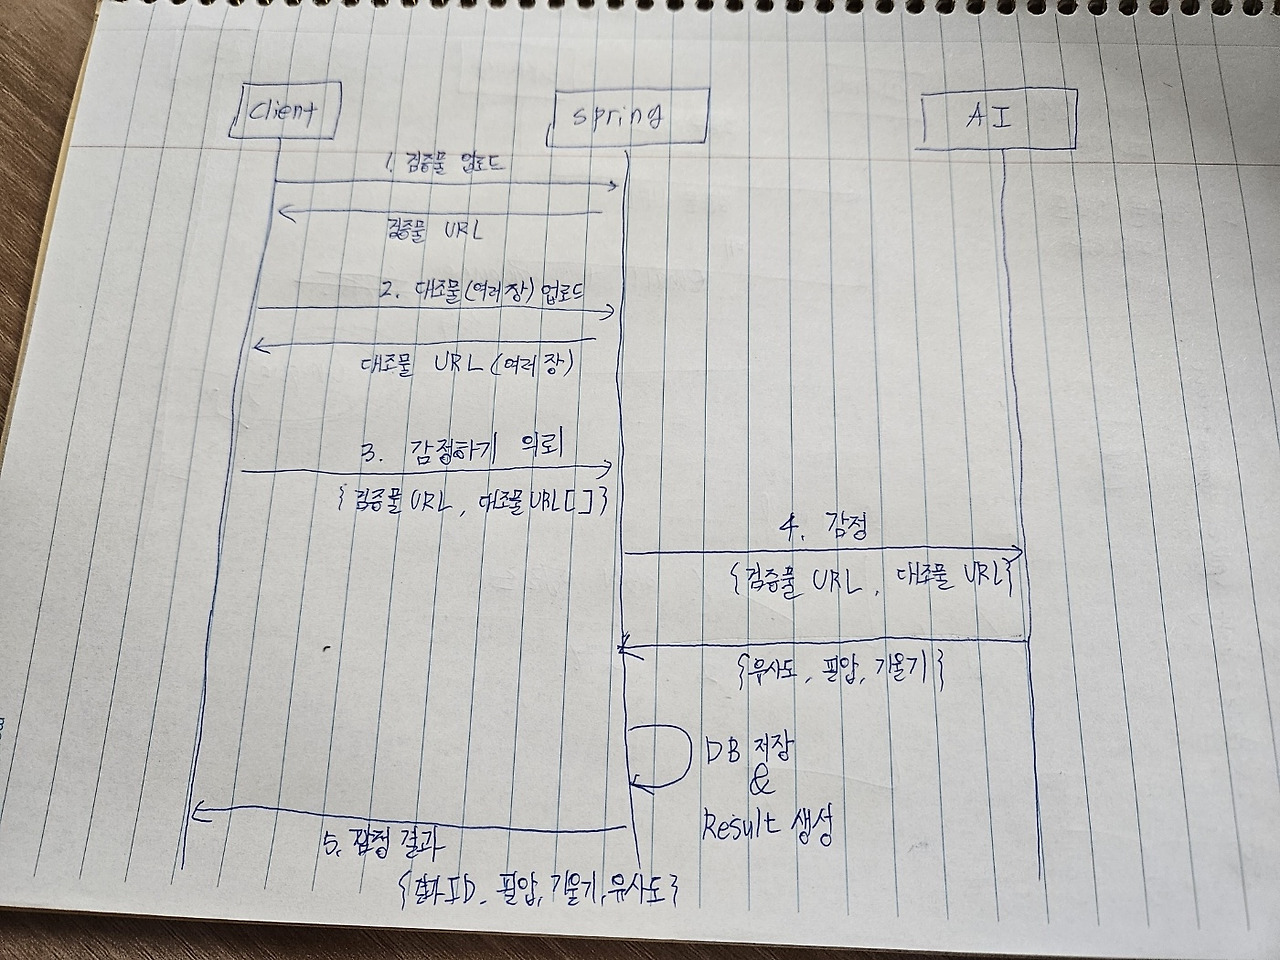 client
spring
AI
1. 검증물 업로드
검증물 URL
2. 대조물(여러장) 업로드
대조물 URL (여러장)
3. 감정하기 의뢰
{검증물 URL, 대조물 URL[]}
4. 감정
{검증물 URL, 대조물 URL}
{유사도, 필압, 기울기}
DB 저장
&
Result 생성
5. 감정 결과
{결과ID, 필압, 기울기, 유사도}